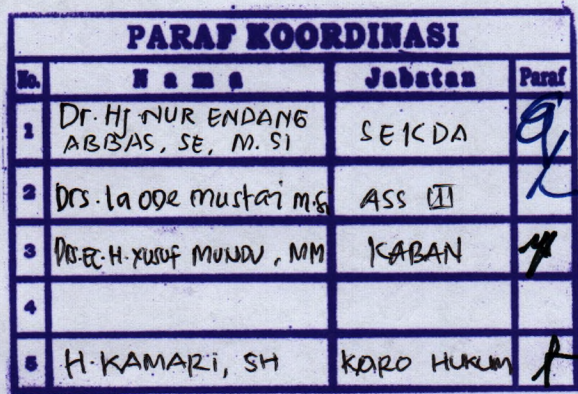 PARAF KOORDINASI
No. Nama Jabatan Paraf
1 Dr. Hj NUR ENDANG
ABBAS, SE, M.SI SEKDA
2 Drs. la ode mustari M.Si ASS III
3 Drs. Ec. H. Yusuf MUNDU, MM KABAN
4
5 H. KAMARI, SH KARO HUKUM